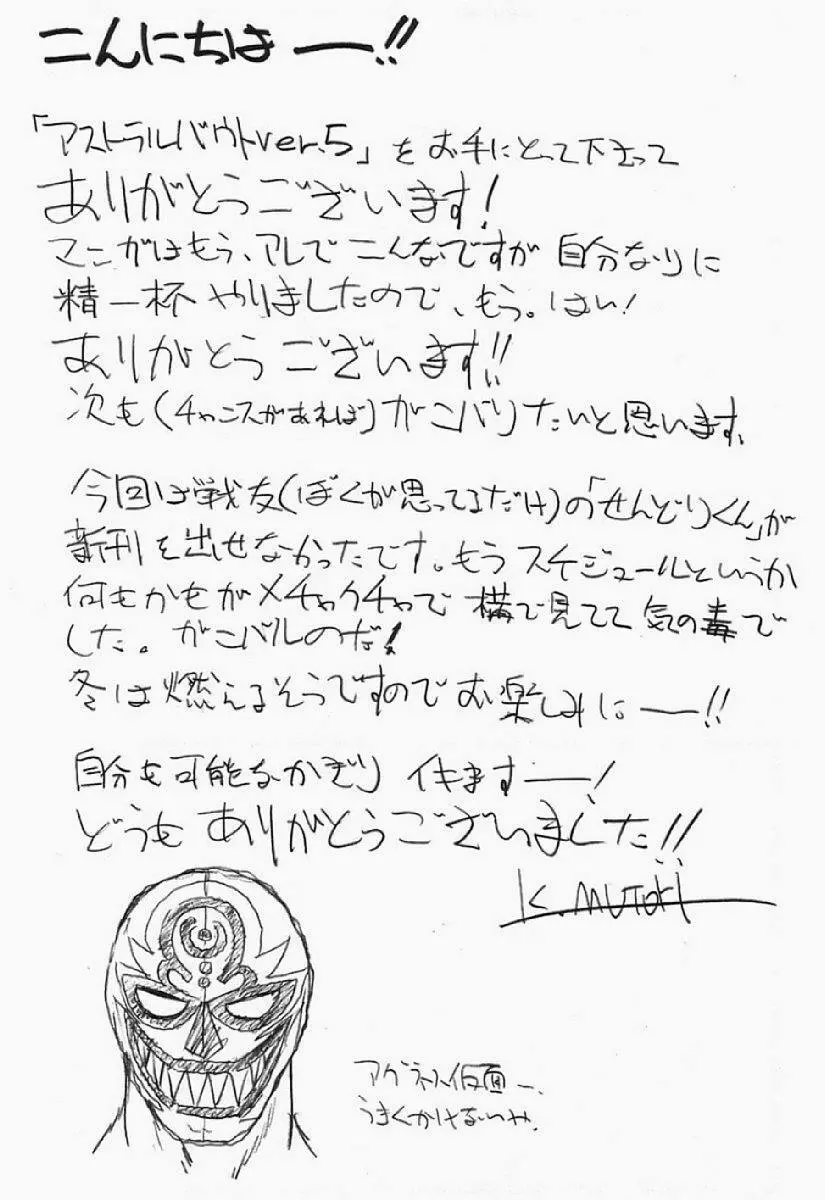 こんにちはー!!
「アストラルバウトver.5」をお手にとって下さって
ありがとうございます!
マンガはもう、アレでこんなですが 自分なりに
精一杯 やりましたので、もう。はい!
ありがとうございます!!
次も(チャンスがあれば)がンバりたいと思います。
今回は戦友(ぼくが思ってるだけ)の「せんどりくん」が
新刊を出せなかったです。もうスケジュールというか
何もかもがメチャクチャで 横で見てて 気の毒で
した。ガンバルのだ!
冬は燃えるそうですのでお楽しみにー!!
自分も可能なかぎり イキますー!
どうもありがとうございました!!
K.MUTOKI
アグネス仮面ー。
うまくかけないや。